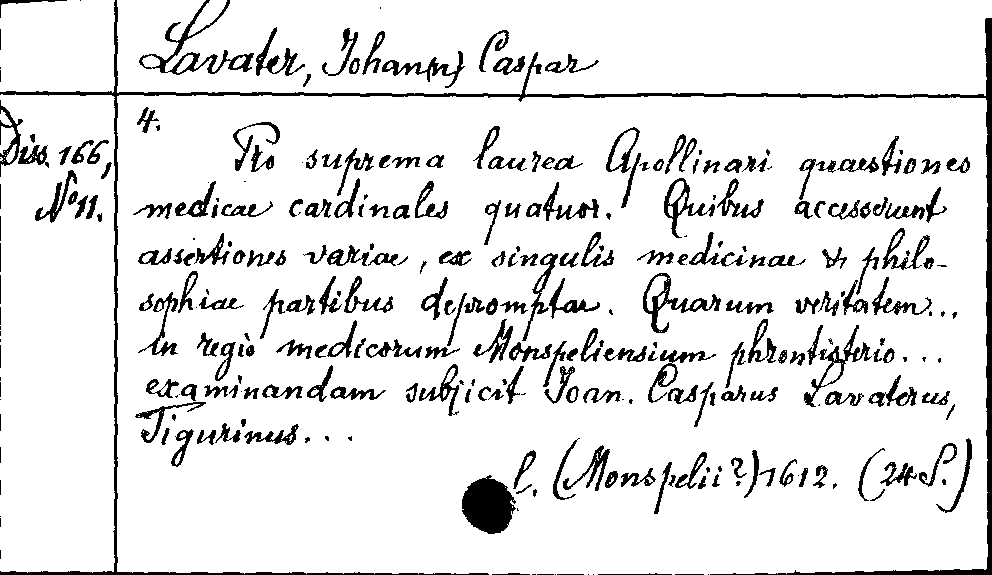 Lavater, Johan(n) Caspar
4.
Diss. 166,
No 11.
Pro suprema laurea Apollinari quaestiones
medicae cardinales quatuor. Quibus accesserunt
assertiones variae, ex singulis medicinae & philo-
sophiae partibus depromptae. Quarum veritatem...
in regio medicorum Monspeliensium phrontisterio...
examinandam subjicit Joan. Casparus Lavaterus,
Tigurinus...
l. (Monspelii?) 1612. (24 S.)